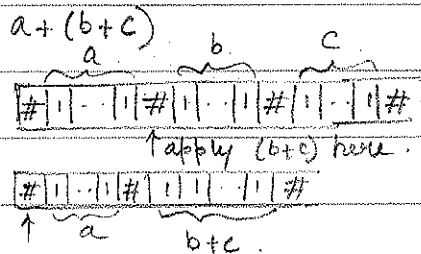 a + (b+c)
a b c
# 1 . . 1 # 1 . . 1 # 1 . . 1 #
↑ apply (b+c) here.
# 1 . . 1 # 1 1 . . 1 #
↑ a b+c.